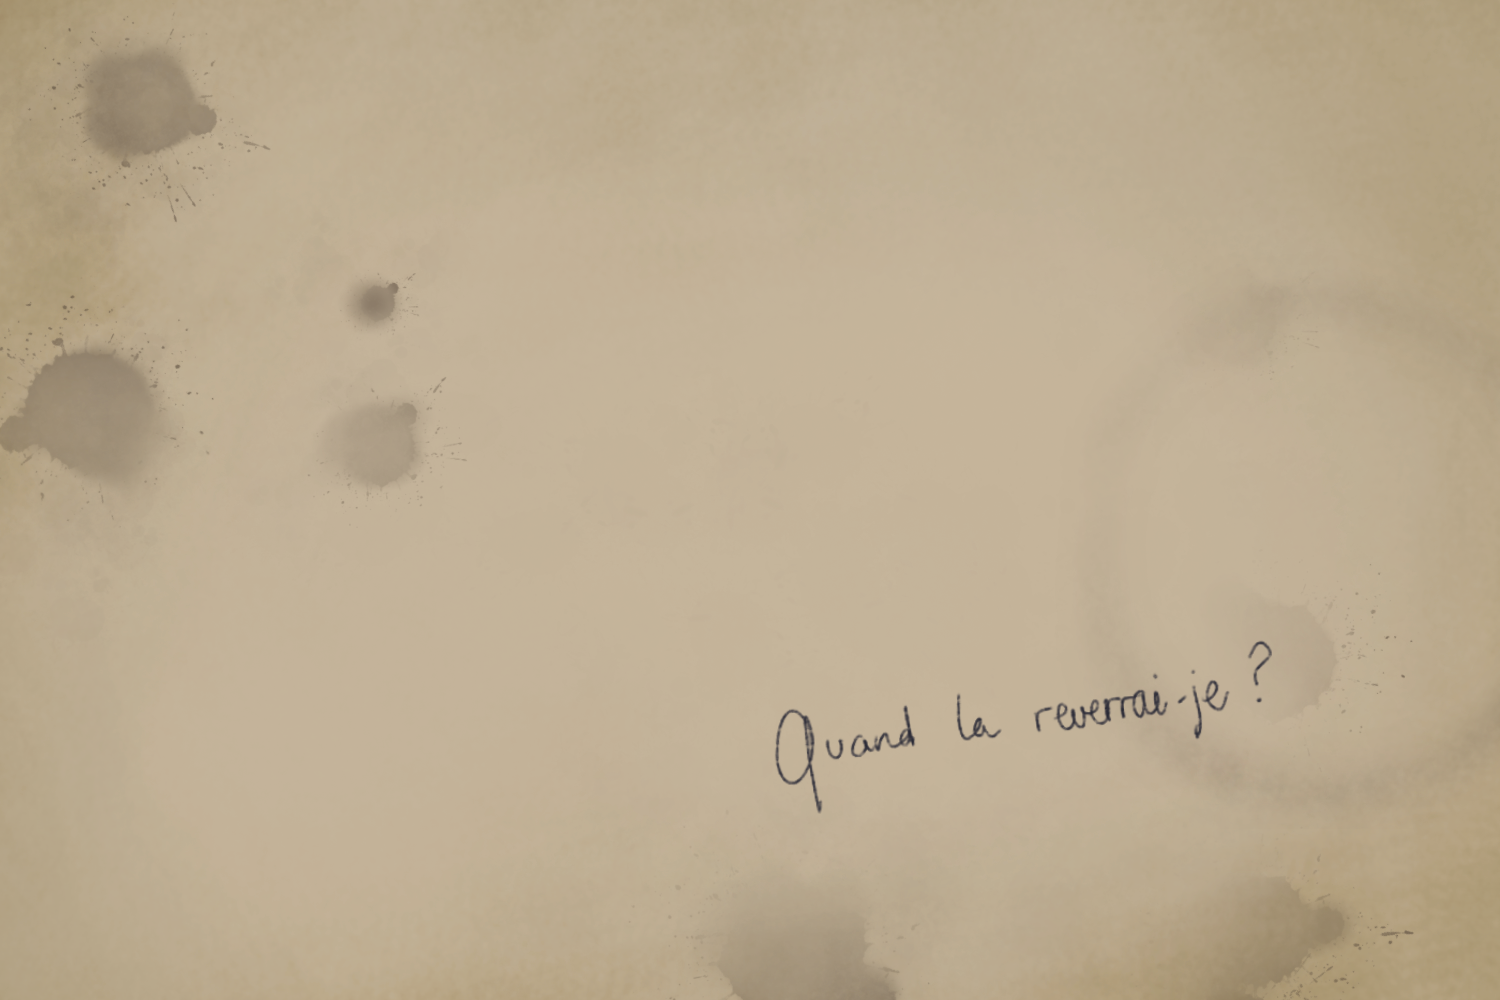 Quand la reverrai-je ?